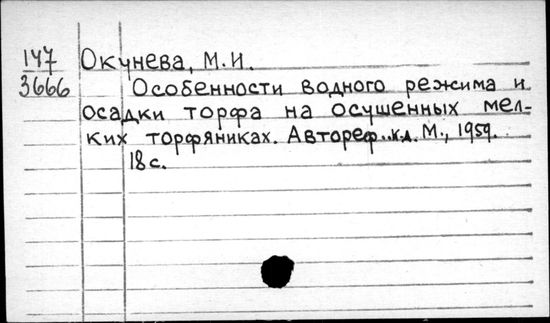 147
3666
Окунева, М.И.
Особенности водного режима и
осадки торфа на осушенных мел-
ких торфяниках. Автореф. к.д. М., 1959.
18 с.